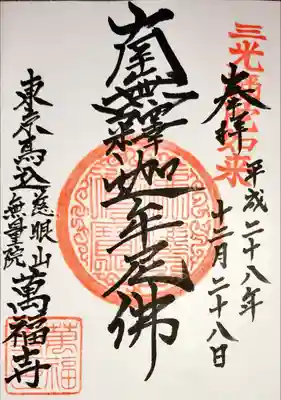 三光
如来
奉拝
平成二十八年
十二月二十八日
南無釋迦牟尼佛
東京馬込
慈眼山
無量院
萬福寺
萬福